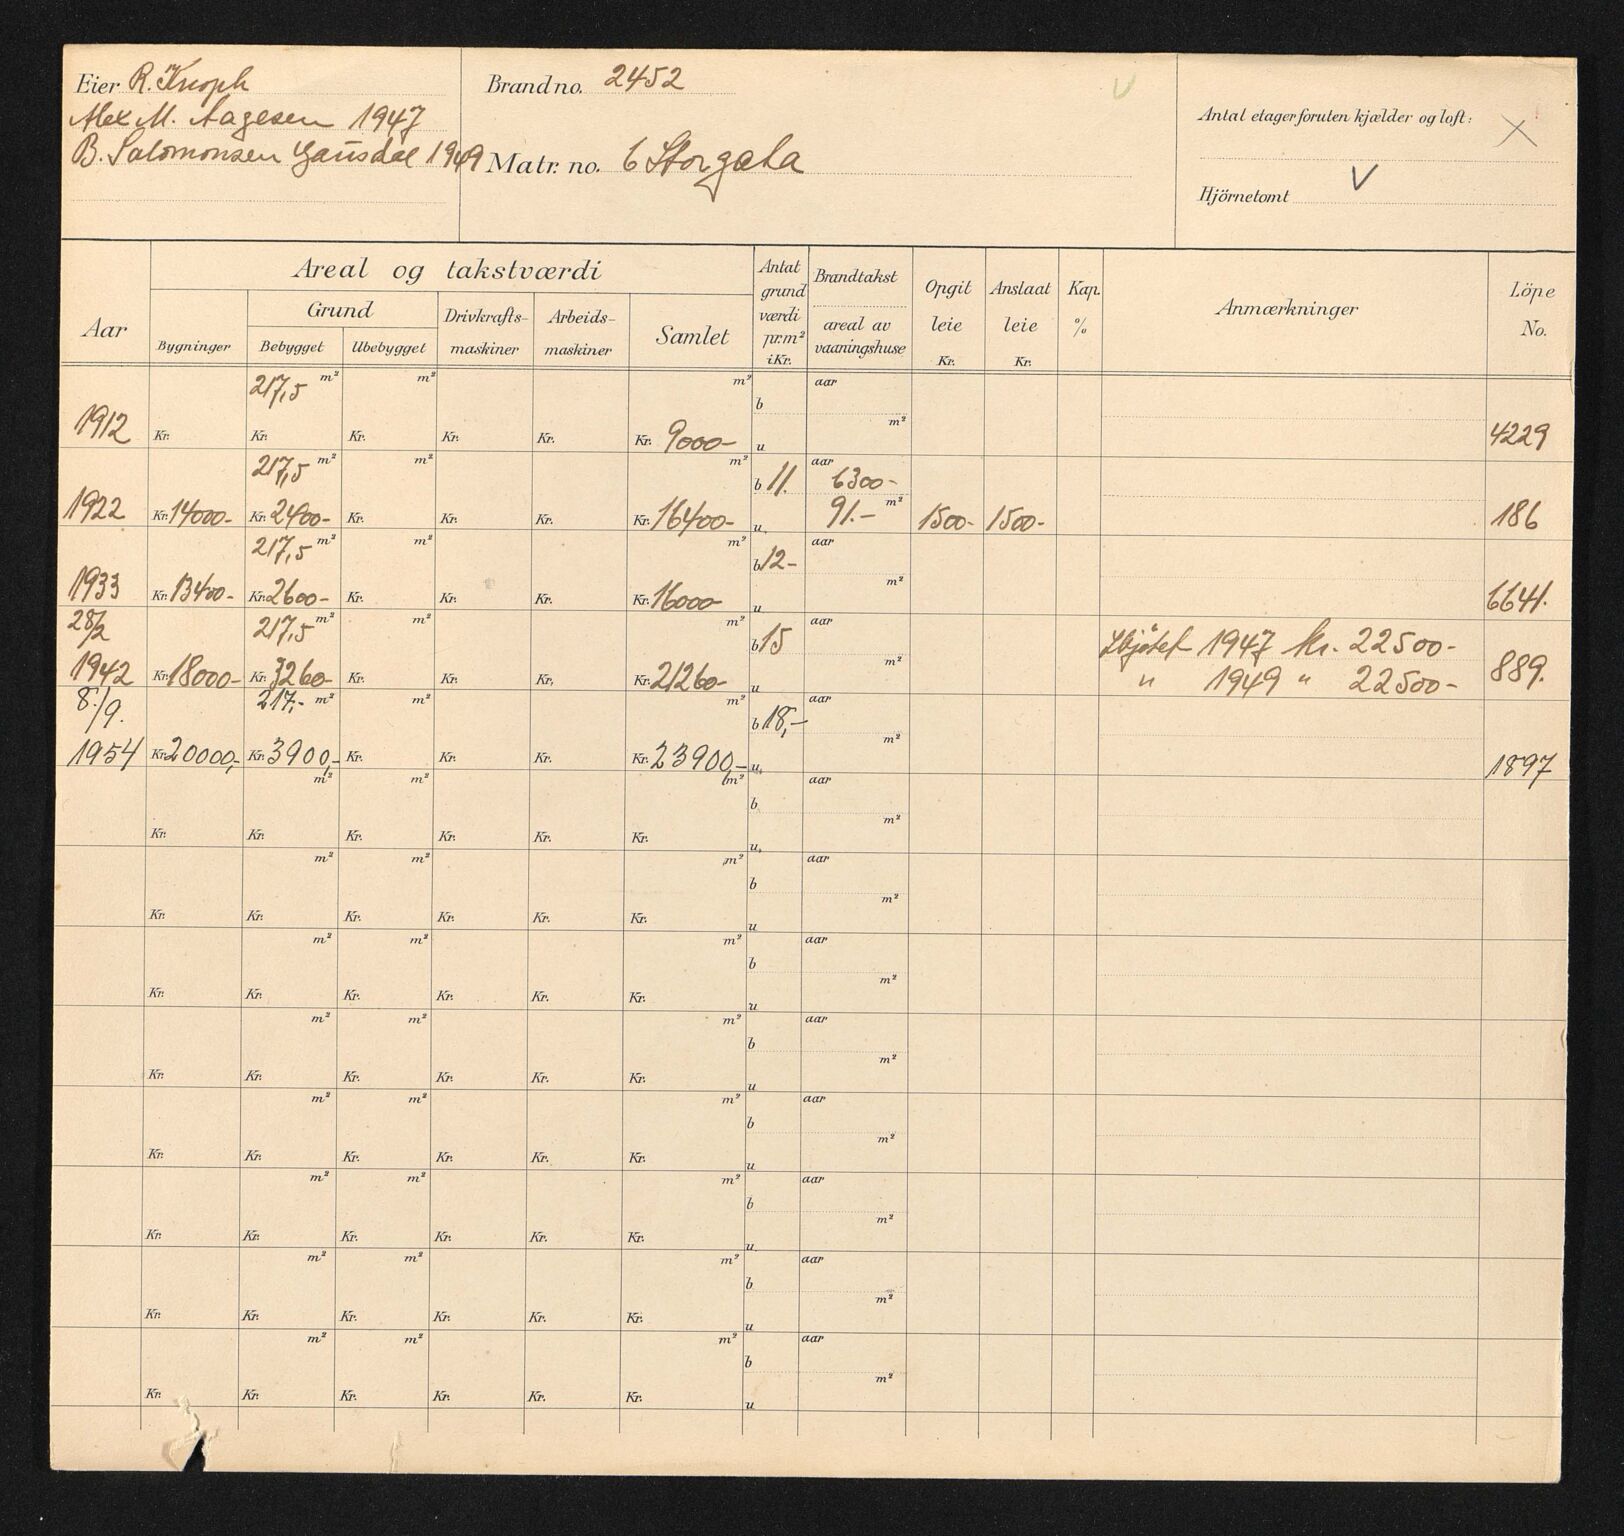 Eier R. Knoph
Alex M. Aagesen 1947
B. Salomonsen Gausdal 1949
Brand no. 2452
Matr. no. 6 Storgata
Antal etager foruten kjælder og loft:
Hjörnetomt
Aar
Areal og takstværdi
Grund
Bygninger
Bebygget
Ubebygget
Drivkrafts-
maskiner
Arbeids-
maskiner
Samlet
Antat
grund
værdi
pr.m²
i Kr.
Brandtakst
areal av
vaaningshuse
Opgit
leie
Kr.
Anslaat
leie
Kr.
Kap.
%
Anmærkninger
Löpe
No.
217,5 m² m² m² b aar
1912 Kr. Kr. Kr. Kr. Kr. Kr. 9000- u m² 4229
217,5 m² m² m² b 11. aar 6300-
1922 Kr. 14000- Kr. 2400- Kr. Kr. Kr. Kr. 16400- u 91.- m² 1500- 1500- 186
217,5 m² m² m² b 12- aar
1933 Kr. 13400- Kr. 2600- Kr. Kr. Kr. Kr. 16000- u m² 6641.
28/2 217,5 m² m² m² b 15 aar Skjötet 1947 kr. 22500-
1942 Kr. 18000- Kr. 3260- Kr. Kr. Kr. Kr. 21260- u m² " 1949 " 22500- 889.
8./9. 217,- m² m² m² b 18,- aar
1954 Kr. 20000,- Kr. 3900,- Kr. Kr. Kr. Kr. 23900,- u m² 1897
m² m² m² b aar
Kr. Kr. Kr. Kr. Kr. Kr. u m²
m² m² m² b aar
Kr. Kr. Kr. Kr. Kr. Kr. u m²
m² m² m² b aar
Kr. Kr. Kr. Kr. Kr. Kr. u m²
m² m² m² b aar
Kr. Kr. Kr. Kr. Kr. Kr. u m²
m² m² m² b aar
Kr. Kr. Kr. Kr. Kr. Kr. u m²
m² m² m² b aar
Kr. Kr. Kr. Kr. Kr. Kr. u m²
m² m² m² b aar
Kr. Kr. Kr. Kr. Kr. Kr. u m²
m² m² m² b aar
Kr. Kr. Kr. Kr. Kr. Kr. u m²